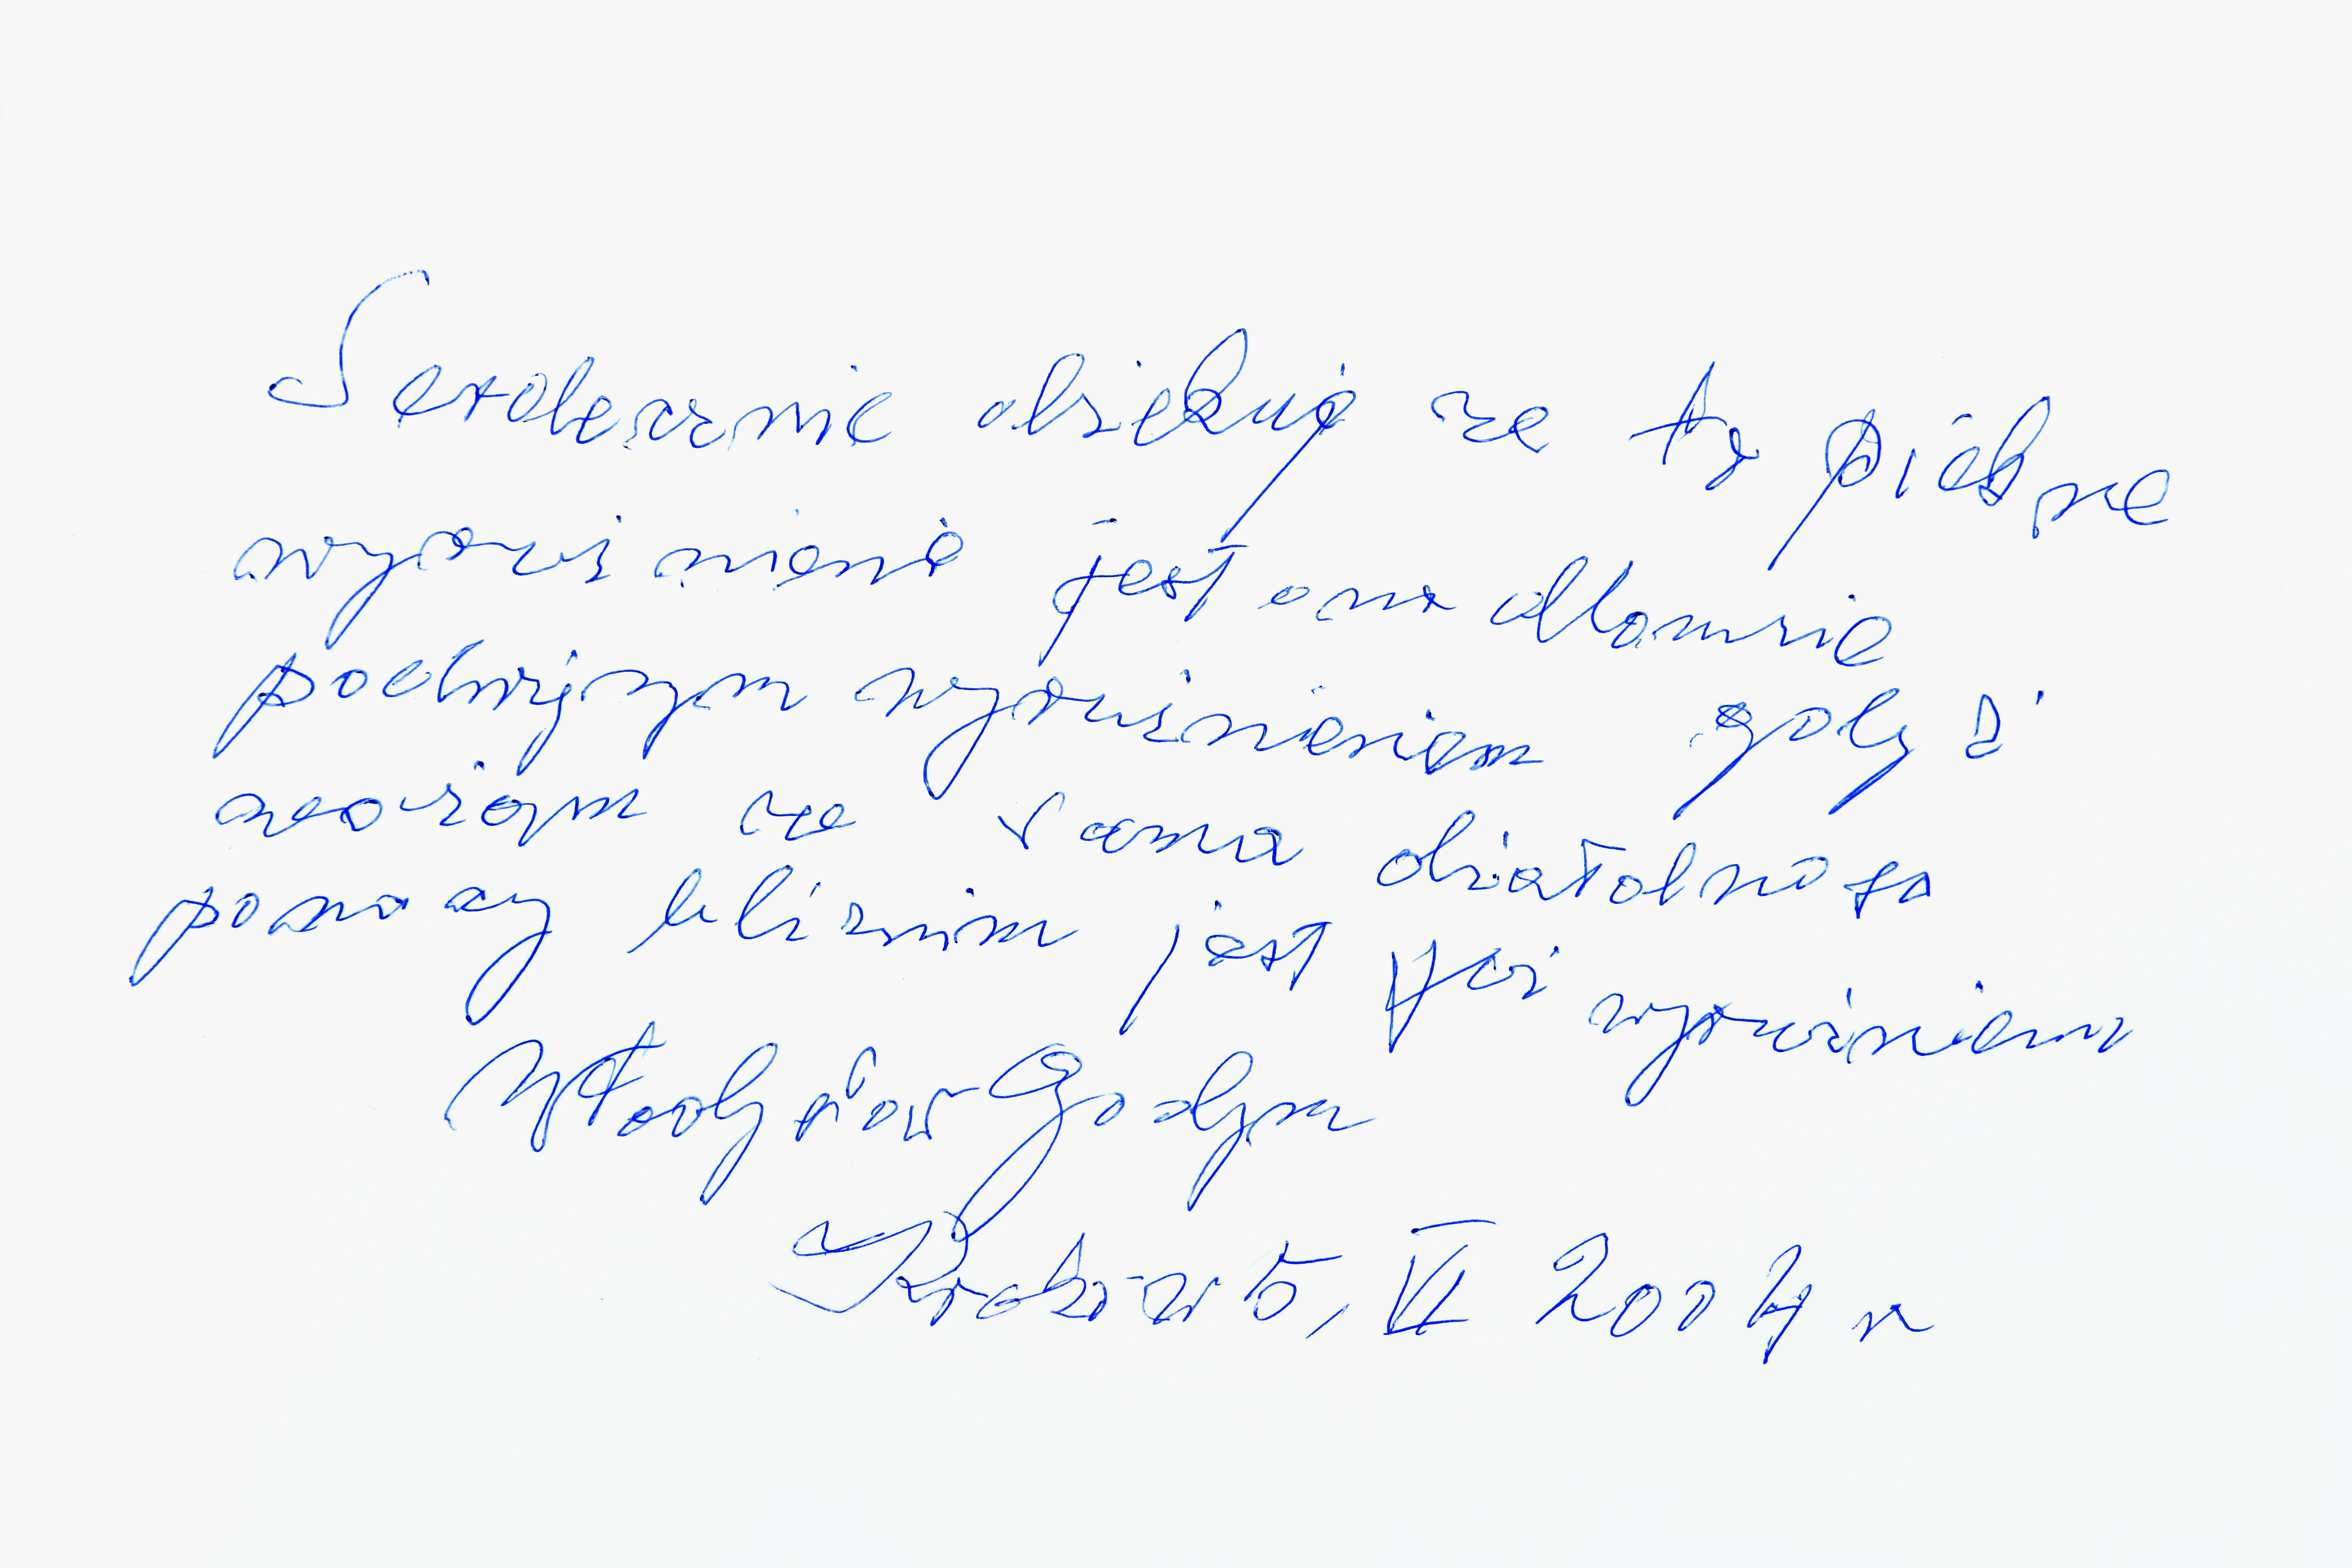 Serdecznie dziękuję za te piękne
wyróżnienie jest ona dla mnie
podwójnym wyróżnieniem gdyż
uważam że sama działalność
pomocy bliźnim jest już wyróżnieniem
Władysław Godyn
Kraków 5, VI 2004 r